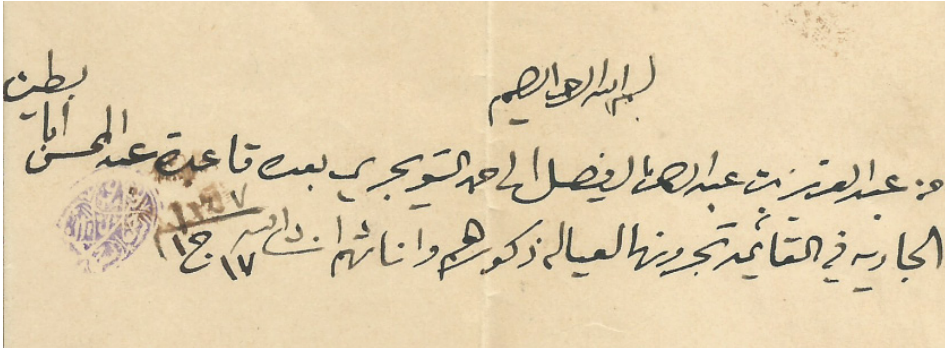 بسم الله الرحمن الرحيم
من عبدالعزيز بن عبدالرحمن الفيصل الى حمد التويجري بعده قاعدة عبدالمحسن
الجاريه في القائمه تجرونها لعياله ذكورهم واناثهم ان شاء الله ١٧ ج١